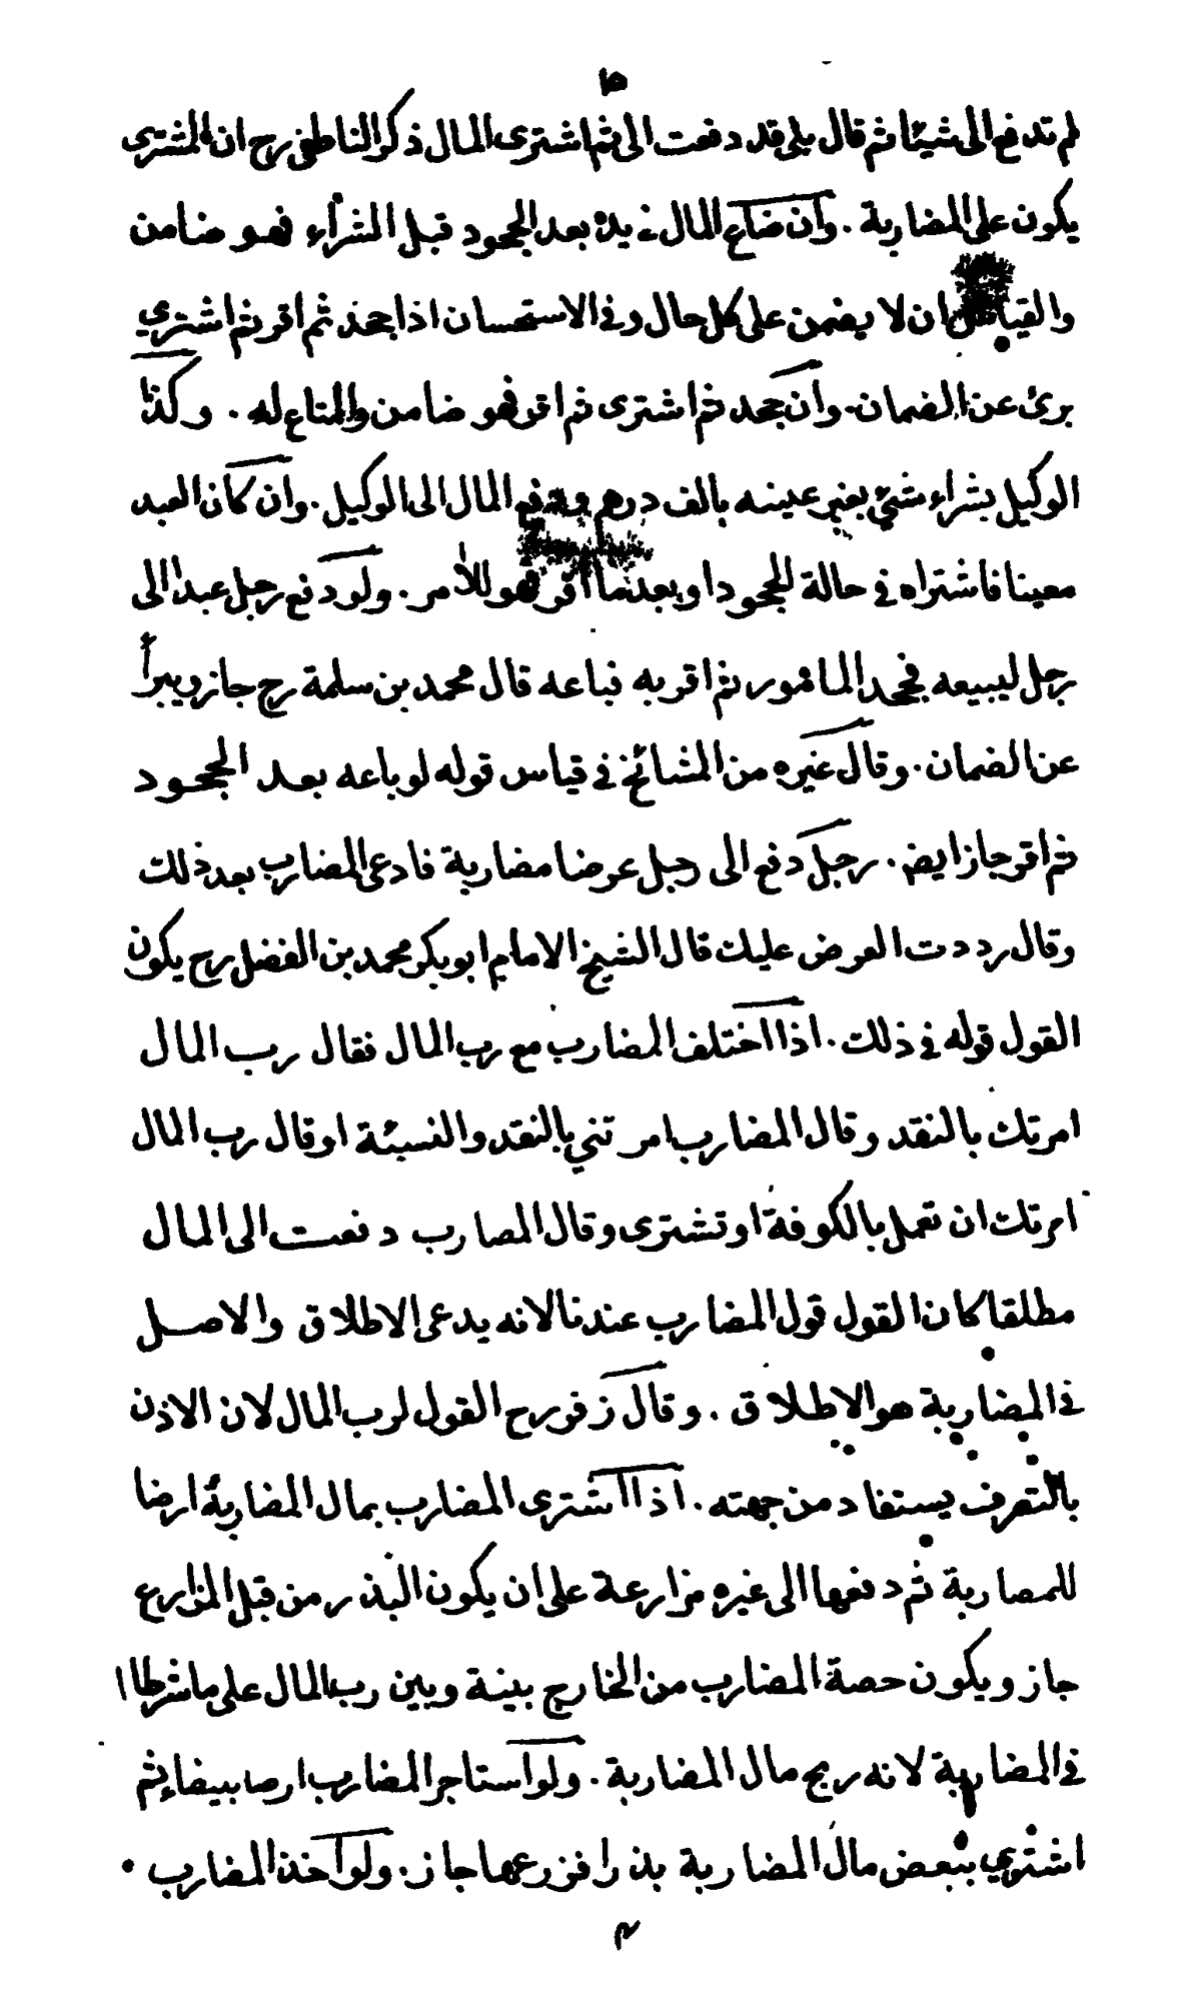 ١٥
لم تدفع الى شيئا ثم قال بلى قد دفعت الى ثم اشترى المال ذكر الناطفى رح ان المشترى
يكون على المضاربة . وان ضاع المال فى يده بعد الجحود قبل الشراء فهو ضامن
والقياس ان لا يضمن على كل حال وفى الاستحسان اذا جحد ثم اقر ثم اشترى
برئ عن الضمان . وان جحد ثم اشترى ثم اقر فهو ضامن والمتاع له . وكذا
الوكيل بشراء شئ بغير عينه بالف درهم ودفع المال الى الوكيل . وان كان العبد
معينا فاشتراه فى حالة الجحود او بعد ما اقر فهو للآمر . ولو دفع رجل عبدا الى
رجل ليبيعه فجحد المامور ثم اقر به فباعه قال محمد بن سلمة رح جاز ويبرأ
عن الضمان . وقال غيره من المشائخ فى قياس قوله لو باعه بعد الجحود
ثم اقر جاز ايض . رجل دفع الى رجل عرضا مضاربة فادعى المضارب بعد ذلك
وقال رددت العرض عليك قال الشيخ الامام ابو بكر محمد بن الفضل رح يكون
القول قوله فى ذلك . اذا اختلف المضارب مع رب المال فقال رب المال
امرتك بالنقد وقال المضارب امرتني بالنقد والنسئة او قال رب المال
امرتك ان تعمل بالكوفة او تشترى وقال المصارب دفعت الى المال
مطلقا كان القول قول المضارب عندنا لانه يدعى الاطلاق والاصل
فى المضاربة هو الاطلاق . وقال زفر رح القول لرب المال لان الاذن
بالتصرف يستفاد من جهته . اذا اشترى المضارب بمال المضاربة ارضا
للمصاربة ثم دفعها الى غيره مزارعة على ان يكون البذر من قبل المزارع
جاز ويكون حصة المضارب من الخارج بينة وبين رب المال على ما شرطا
فى المضاربة لانه ربح مال المضاربة . ولو استاجر المضارب ارصا بيضاء ثم
اشترى ببعض مال المضاربة بذرا فزرعها جاز . ولو اخذ المضارب